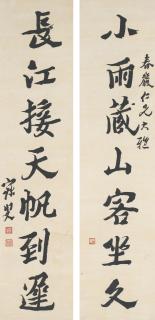 小雨藏山客坐久
春巖仁兄大雅
長江接天帆到遲